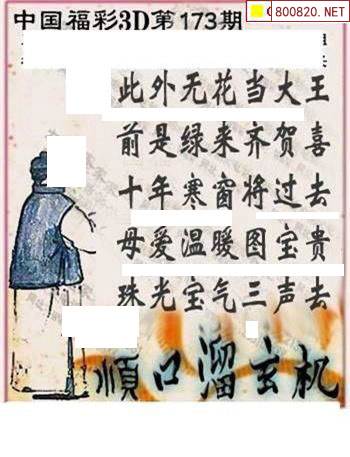 800820.NET
中国福彩3D第173期
此外无花当大王
前是绿来齐贺喜
十年寒窗将过去
母爱温暖图宝贵
珠光宝气三声去
順口溜玄机